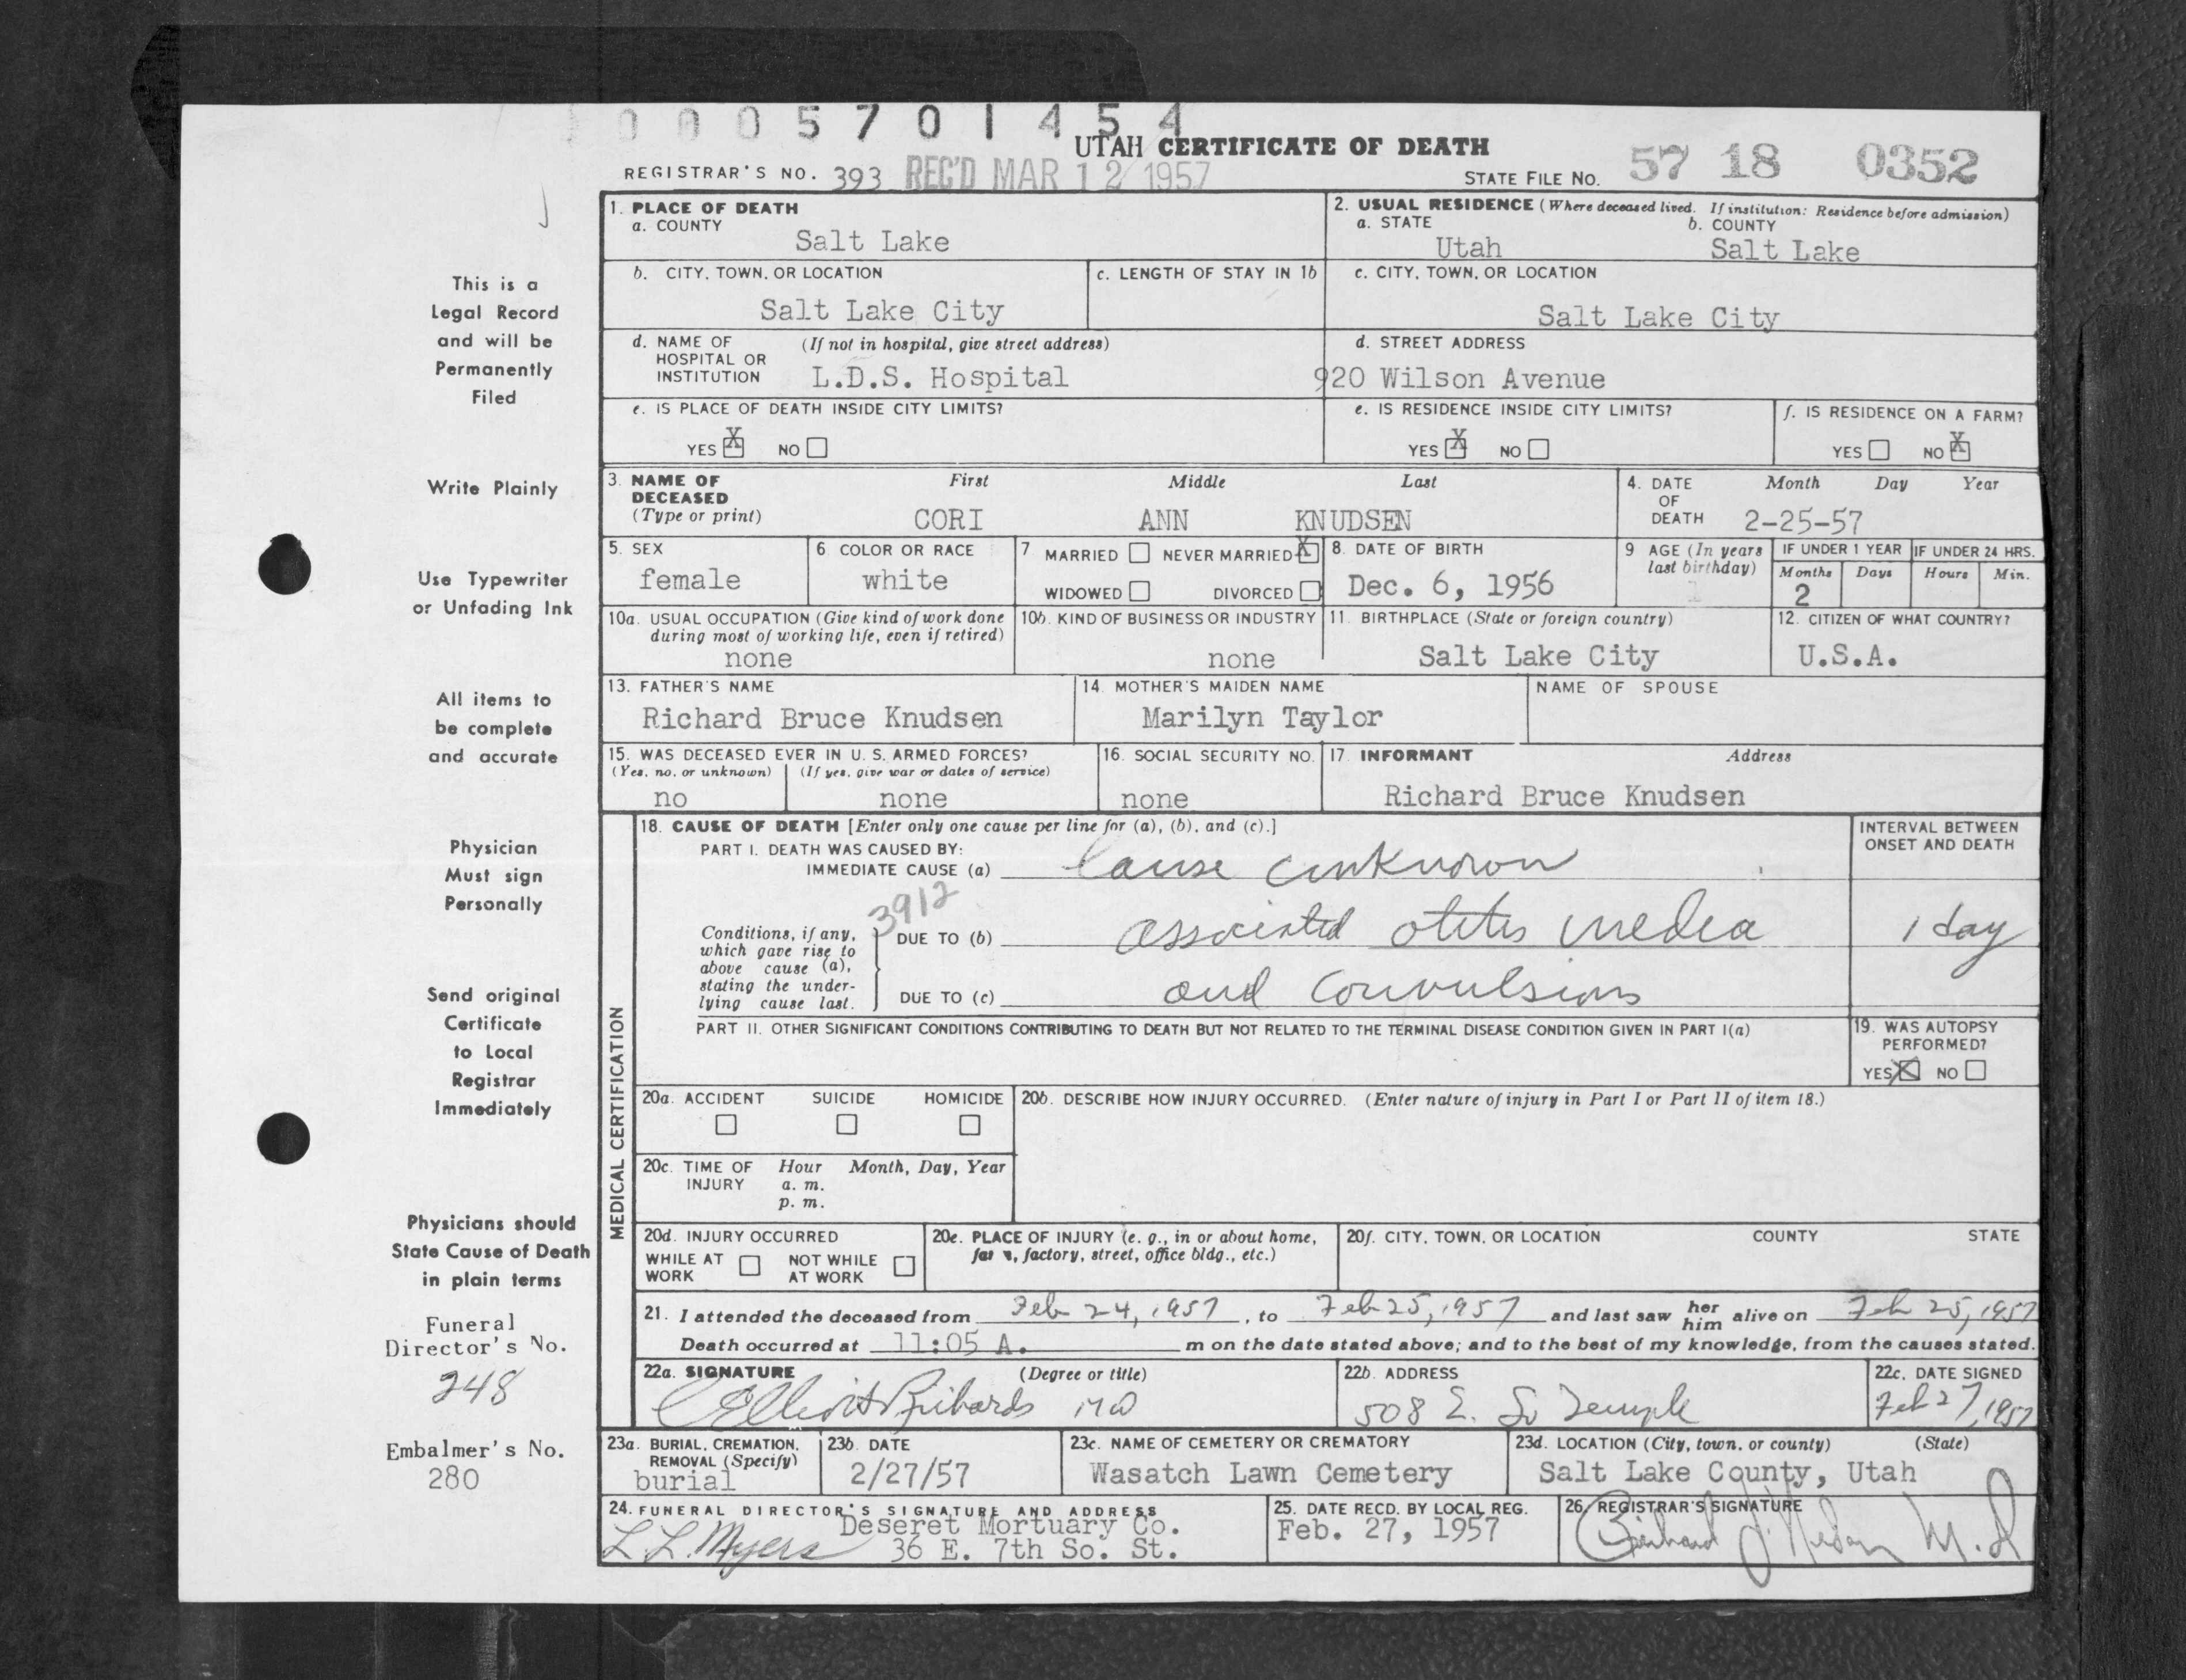 0005701454
UTAH CERTIFICATE OF DEATH
REGISTRAR'S NO. 393 REC'D MAR 12 1957 STATE FILE NO. 57 18 0352
This is a
Legal Record
and will be
Permanently
Filed
Write Plainly
Use Typewriter
or Unfading Ink
All items to
be complete
and accurate
Physician
Must sign
Personally
Send original
Certificate
to Local
Registrar
Immediately
Physicians should
State Cause of Death
in plain terms
Funeral
Director's No.
248
Embalmer's No.
280
1. PLACE OF DEATH
a. COUNTY
Salt Lake
2. USUAL RESIDENCE (Where deceased lived. If institution: Residence before admission)
a. STATE b. COUNTY
Utah Salt Lake
b. CITY, TOWN, OR LOCATION
Salt Lake City
c. LENGTH OF STAY IN 1b
c. CITY, TOWN, OR LOCATION
Salt Lake City
d. NAME OF (If not in hospital, give street address)
HOSPITAL OR
INSTITUTION L.D.S. Hospital
d. STREET ADDRESS
920 Wilson Avenue
e. IS PLACE OF DEATH INSIDE CITY LIMITS?
YES X NO
e. IS RESIDENCE INSIDE CITY LIMITS?
YES X NO
f. IS RESIDENCE ON A FARM?
YES NO X
3. NAME OF First Middle Last
DECEASED
(Type or print) CORI ANN KNUDSEN
4. DATE Month Day Year
OF
DEATH 2-25-57
5. SEX
female
6. COLOR OR RACE
white
7 MARRIED NEVER MARRIED X
WIDOWED DIVORCED
8. DATE OF BIRTH
Dec. 6, 1956
9 AGE (In years
last birthday)
IF UNDER 1 YEAR
Months Days
2
IF UNDER 24 HRS.
Hours Min.
10a. USUAL OCCUPATION (Give kind of work done
during most of working life, even if retired)
none
10b. KIND OF BUSINESS OR INDUSTRY
none
11. BIRTHPLACE (State or foreign country)
Salt Lake City
12. CITIZEN OF WHAT COUNTRY?
U.S.A.
13. FATHER'S NAME
Richard Bruce Knudsen
14. MOTHER'S MAIDEN NAME
Marilyn Taylor
NAME OF SPOUSE
15. WAS DECEASED EVER IN U. S. ARMED FORCES?
(Yes, no, or unknown) (If yes, give war or dates of service)
no none
16. SOCIAL SECURITY NO.
none
17. INFORMANT Address
Richard Bruce Knudsen
MEDICAL CERTIFICATION
18. CAUSE OF DEATH [Enter only one cause per line for (a), (b), and (c).]
PART I. DEATH WAS CAUSED BY:
IMMEDIATE CAUSE (a) Cause unknown
3912
Conditions, if any,
which gave rise to
above cause (a),
stating the under-
lying cause last.
DUE TO (b) associated otitis media
DUE TO (c) and convulsions
INTERVAL BETWEEN
ONSET AND DEATH
1 day
PART II. OTHER SIGNIFICANT CONDITIONS CONTRIBUTING TO DEATH BUT NOT RELATED TO THE TERMINAL DISEASE CONDITION GIVEN IN PART I(a)
19. WAS AUTOPSY
PERFORMED?
YES X NO
20a. ACCIDENT SUICIDE HOMICIDE
20b. DESCRIBE HOW INJURY OCCURRED. (Enter nature of injury in Part I or Part II of item 18.)
20c. TIME OF Hour Month, Day, Year
INJURY a. m.
p. m.
20d. INJURY OCCURRED
WHILE AT NOT WHILE
WORK AT WORK
20e. PLACE OF INJURY (e. g., in or about home,
farm, factory, street, office bldg., etc.)
20f. CITY, TOWN, OR LOCATION COUNTY STATE
21. I attended the deceased from Feb 24, 1957, to Feb 25, 1957 and last saw her him alive on Feb 25, 1957
Death occurred at 11:05 A. m on the date stated above; and to the best of my knowledge, from the causes stated.
22a. SIGNATURE (Degree or title)
Elliott Richards MD
22b. ADDRESS
508 E. So Temple
22c. DATE SIGNED
Feb 27, 1957
23a. BURIAL, CREMATION,
REMOVAL (Specify)
burial
23b. DATE
2/27/57
23c. NAME OF CEMETERY OR CREMATORY
Wasatch Lawn Cemetery
23d. LOCATION (City, town, or county) (State)
Salt Lake County, Utah
24. FUNERAL DIRECTOR'S SIGNATURE AND ADDRESS
Deseret Mortuary Co.
L. L. Myers 36 E. 7th So. St.
25. DATE RECD. BY LOCAL REG.
Feb. 27, 1957
26. REGISTRAR'S SIGNATURE
M.D